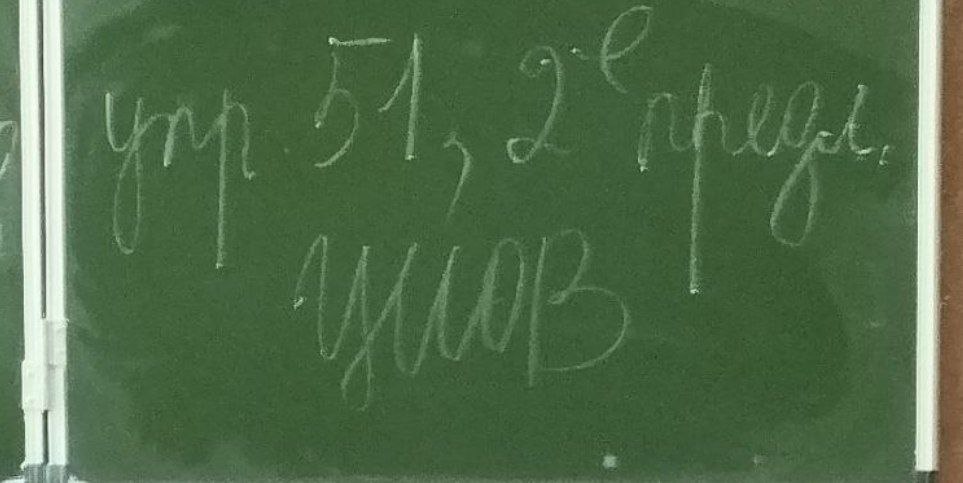 упр 51, 2-е предл.
УИОВ